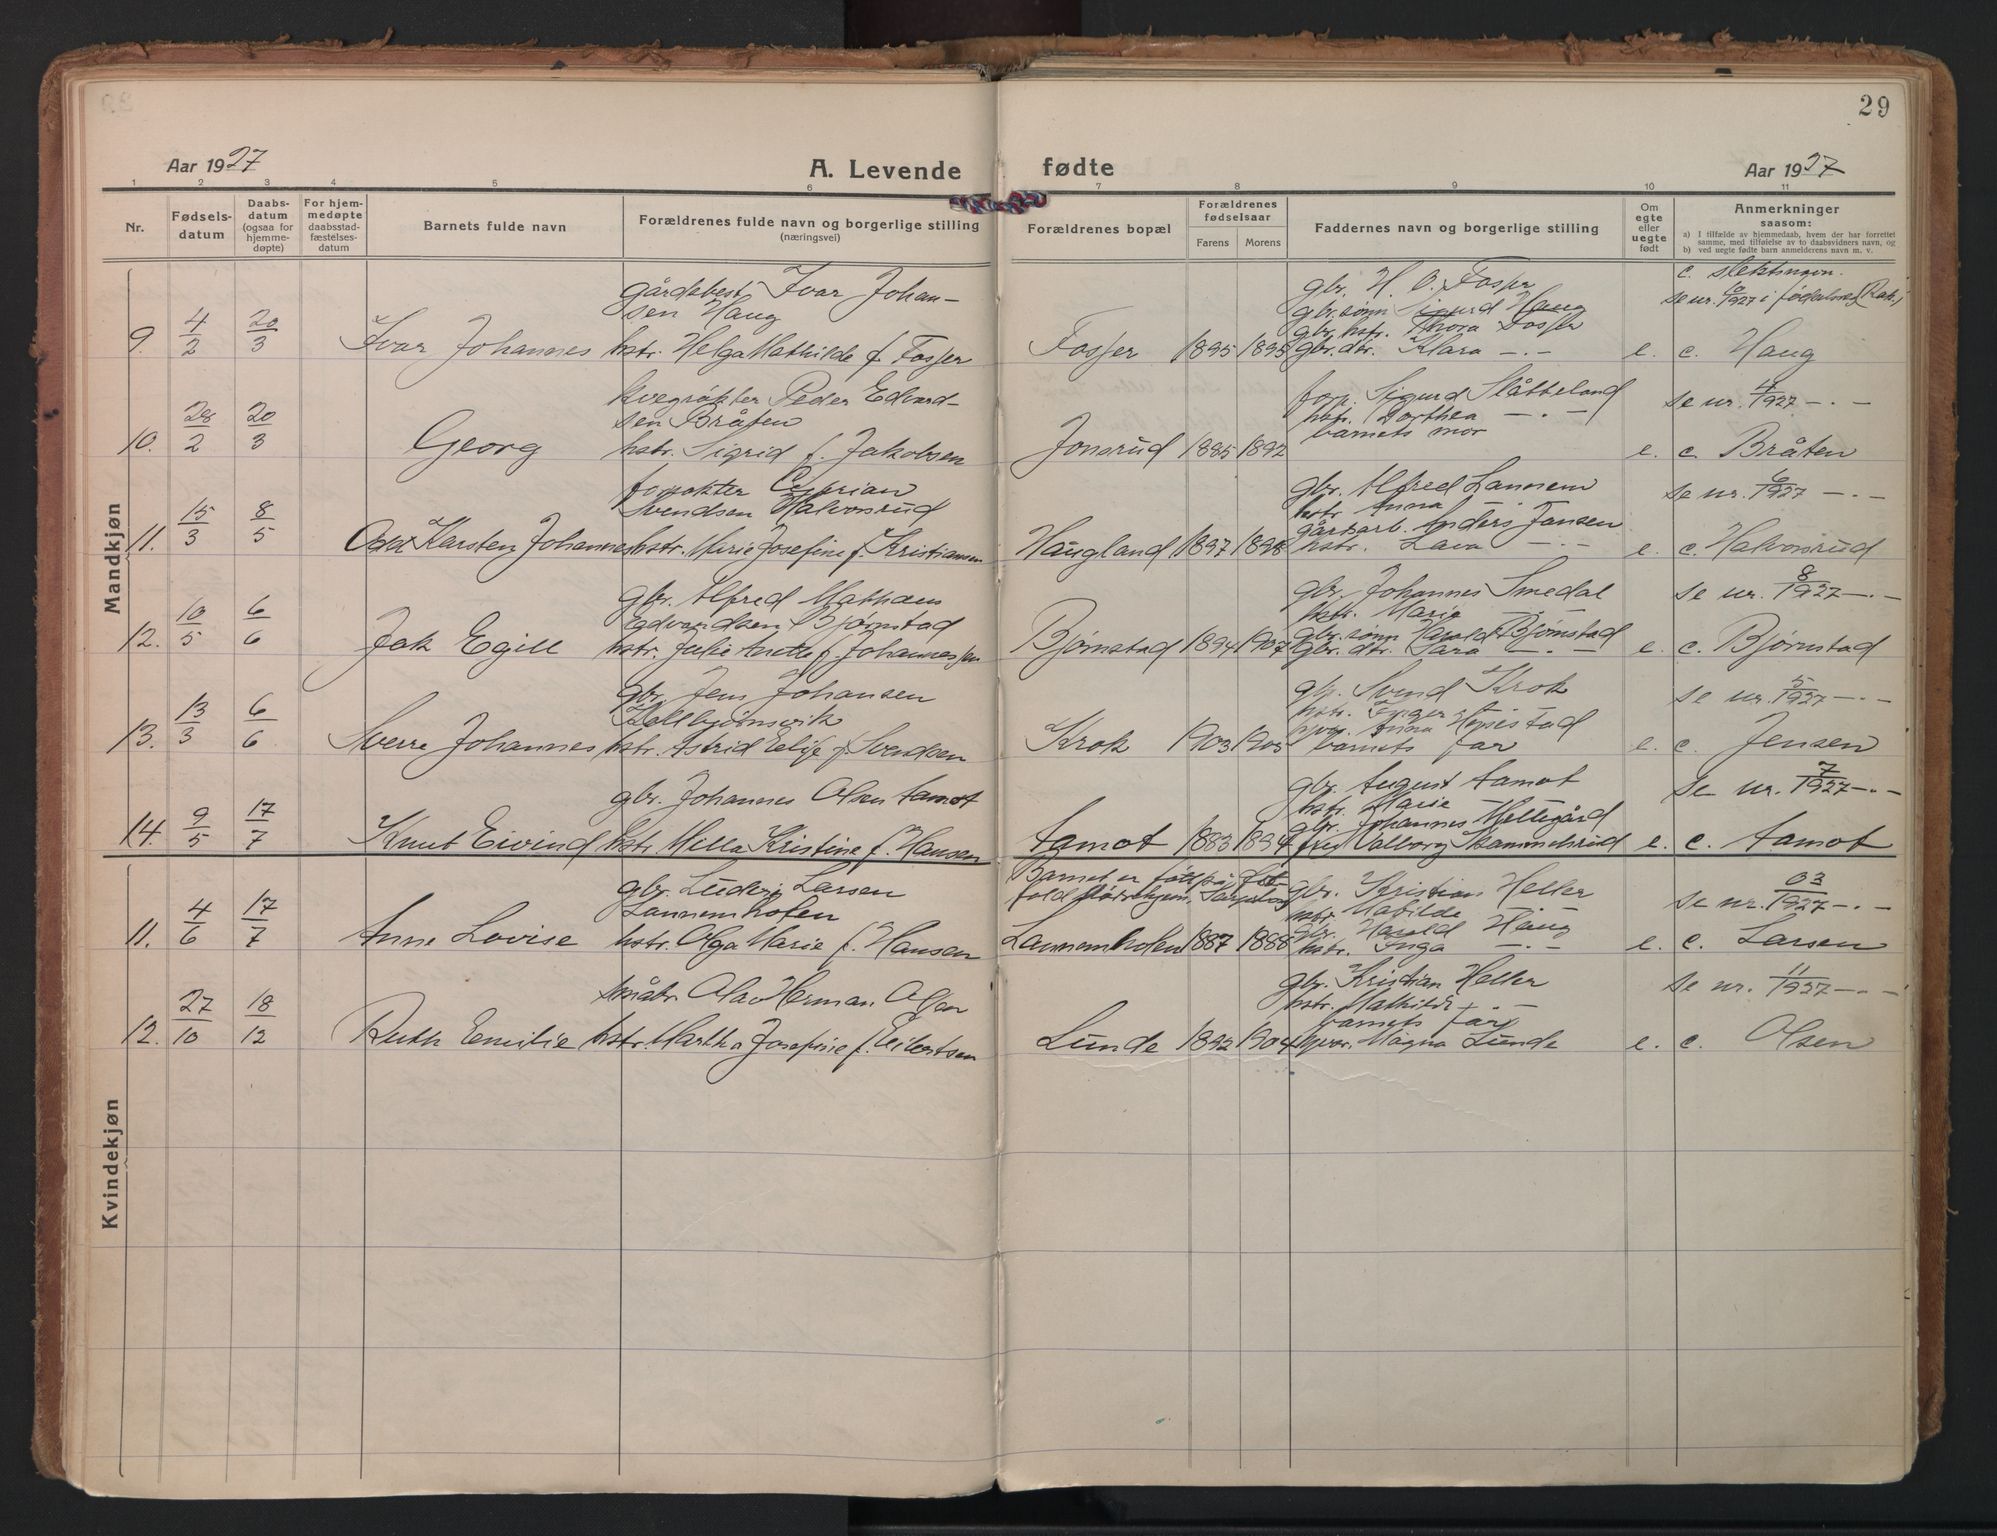 29
Aar 1927
A. Levende fødte
Aar 1927
1 2 3 4 5 6 7 8 9 10 11
Nr.
Fødsels-
datum
Daabs-
datum
(ogsaa for
hjemme-
døpte)
For hjem-
medøpte
daabsstad-
fæstelses-
datum
Barnets fulde navn
Forældrenes fulde navn og borgerlige stilling
(næringsvei)
Forældrenes bopæl
Forældrenes
fødselsaar
Farens Morens
Faddernes navn og borgerlige stilling
Om
egte
eller
uegte
født
Anmerkninger
saasom:
a) I tilfælde av hjemmedaab, hvem der har forrettet
samme, med tilføielse av to daabsvidners navn, og
b) ved uegte fødte barn anmelderens navn m. v.
Mandkjøn
9. 4/2 20/3 Ivar Johannes
gårdsbest. Ivar Johan-
sen Haug
hstr. Helga Mathilde f. Fosser
Fosser 1895 1895
gbr. H. O. Fosser
gbr. sønn Sigurd Haug
gbr. hstr. Thora Fosser
gbr. dtr. Klara -·-
e.
c. slektsnavn.
se nr. 6/1927 i fødselsreg.
c. Haug
10. 28/2 20/3 Georg
kvegrøkter Peder Edvard-
sen Bråten
hstr. Sigrid f. Jakobsen
Jonsrud 1885 1892
forp. Sigurd Slåtteland
hstr. Dorthea -·-
barnets mor
e.
se nr. 4/1927 -·-
c. Bråten
11. 15/3 8/5 Karsten Johannes
Svendsen Halvorsrud
hstr. Marie Josefine f. Kristiansen
Haugland 1897 1898
gbr. Alfred Lannem
hstr. Anna
gårdsarb. Anders Jansen
hstr. Lava -·-
e.
se nr. 6/1927 -·-
c. Halvorsrud
12. 10/5 6/6 Jak Egill
gbr. Alfred Mathæus
Edvardsen Bjørnstad
hstr. Julie Anette f. Johannessen
Bjørnstad 1894 1907
gbr. Johannes Smedal
hstr. Marie -·-
gbr. sønn Harald Bjørnstad
gbr. dtr. Sara -·-
e.
se nr. 8/1927 -·-
c. Bjørnstad
13. 13/3 6/6 Sverre Johannes
gbr. Jens Johansen
hstr. Astrid Elise f. Svendsen
Krok 1903 1905
Svend Krok
hstr. Inger
Anna
barnets far
e.
se nr. 5/1927 -·-
c. Jensen
14. 9/5 17/7 Knut Eivind
gbr. Johannes Olsen Aamot
hstr. Milla Kristine f. Hansen
Aamot 1883 1894
gbr. August Aamot
hstr. Marie
gbr. Johannes Mellegård
frk. Valborg
e.
se nr. 7/1927 -·-
c. Aamot
Kvindekjøn
11. 4/6 17/7 Anne Lovise
gbr. Ludvig Larsen
Lannemholen
hstr. Olga Marie f. Hansen
Barnet er født på Øst-
fold fødselshjem, Sarpsborg
Lannemholen 1887 1888
gbr. Kristian Heller
hstr. Matilde
gbr. Harald Haug
hstr. Inga -·-
e.
se nr. 03/1927 -·-
c. Larsen
12. 27/10 18/12 Ruth Emilie
småbr. Olav Herman Olsen
hstr. Martha Josefine f. Eilertsen
Lunde 1892 1904
gbr. Kristian Heller
hstr. Mathilde -·-
barnets far
Magna Lunde
e.
se nr. 11/1927 -·-
c. Olsen